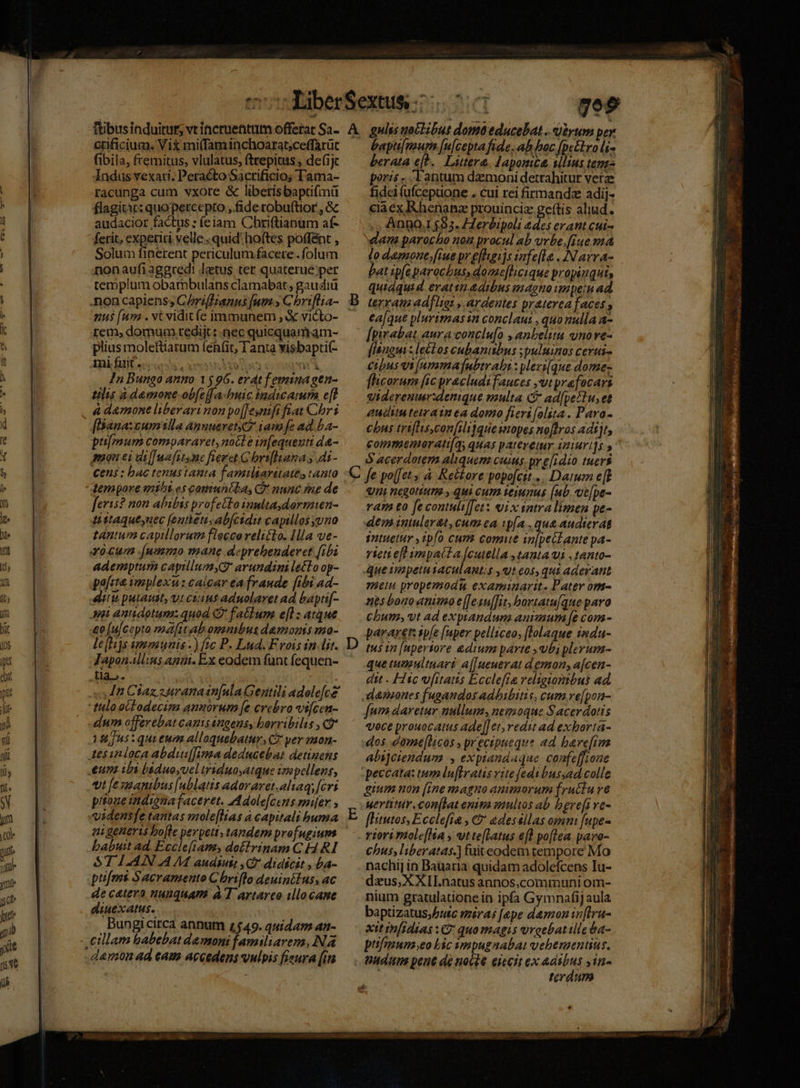 Liber Sextus. 909
ſtibus induitur, vt incruentum offerat Sa-
crificium. Vix miſſam inchoarat, ceſſarūt
ſibila, fremitus, vlulatus, ſtrepitus, deſijt
Indus vexari. Peracto Sacrificio, Tama-
racunga cum vxore & liberis baptiſmū
flagitat: quo percepto, fide robuſtior, &
audacior factus: ſe iam Chriſtianum aſ-
ſerit, experiri velle, quid hoſtes poſſent,
Solum ſinerent periculum facere. ſolum
non auſi aggredi lætus ter quaterue per
templum obambulans clamabat, gaudiū
non capiens, Chriſtianus ſum, Chriſtia-
nus ſum. vt vidit ſe immunem, & victo-
rem, domum redijt: nec quicquam am-
plius moleſtiarum ſenſit, Tanta vis baptiſ-
mi fuit.
In Bungo anno 1596. erat femina gen-
tilis à dæmone obſeſſa. huic indicatum eſt
à dæmone liberari non poſſe, niſi fiat Chri
ſtiana: cum illa annueret, & iam ſe ad ba-
ptiſmum compararet, nocte inſequenti dæ-
mon ei diſſuaſit, ne fieret Chriſtiana, di-
cens: hac tenus tanta familiaritate, tanto
tempore mihi es coniuncta, & nunc me de
ſeris? non abibis profecto inulta, dormien-
ti itaque, nec ſentienti, abſcidit capillos, vno
tantum capillorum flocco relicto. Illa ve-
rò cum ſummo mane deprehenderet ſibi
ademptum capillum, & arundini lecto op-
poſita implexū: caicar ea fraude ſibi ad-
ditū putauit, vt citius aduolaret ad baptiſ-
mi antidotum: quod & factum eſt: atque
eo ſuſcepto māſit ab omnibus dæmonis mo-
leſtijs immunis.) ſic P. Lud. Frois in lit.
Iapon. illius anni. Ex eodem ſunt ſequen-
tia.
In Ciazzurana inſula Gentili adoleſcē
tulo octodecim annorum ſe crebro viſen-
dum offerebat canis ingens, horribilis, &
viſus: qui eum alloquebatur, & per mon-
tes in loca abditiſſima deducebat detinens
eum ibi biduo, vel triduo, atque impellens,
vt ſe manibus ſublatis adoraret. aliaq; ſcri
ptione indigna faceret. Adoleſcens miſer,
vidensſe tantas moleſtias à capitali huma
ni generis hoſte perpeti, tandem profugium
habuit ad Eccleſiam, doctrinam CHRI
STIANAM audiuit, & didicit, ba-
ptiſmi Sacramento Chriſto deuinctus, ac
de cætero nunquam à Tartareo illo cane
diuexatus.
Bungi circa annum 1549. quidam an-
cillam habebat dæmoni familiarem, Nā
dæmon ad eam accedens vulpis figura ſin
A gulis noctibus domo educebat. verum per
baptiſmum ſuſcepta fide, ab hoc ſpectro li-
berata eſt. Littera Iaponica illius tem-
poris. Tantum dæmoni detrahitur veræ
fidei ſuſceptione. cui rei firmandæ adij-
ciā ex Rhenana prouincia geſtis aliud.
Anno 1583. Herbipoli ædes erant cui-
dam parocho non procul ab vrbe, ſiue ma
lo dæmone, ſiue præſtigijs infeſta. Narra-
bat ipſe parochus, domeſticique propinqui,
quidquid erat in ædibus magno impetu ad
B terram adfligi, ardentes præterea faces,
eaſque plurimas in conclaui, quo nulla a-
ſpirabat aura concluſo, anhelitu vno re-
ſtingui: lectos cubantibus, puluinos cerui-
cibus vi ſumma ſubtrahi: pleriſque dome-
ſticorum ſic præcludi fauces, vt præfocari
viderentur: denique multa & adſpectu, et
auditu tetra in ea domo fieri ſolita. Paro-
chus triſtis, conſilijque inopes noſtros adijt,
commemoratiſq; quas pateretur iniurijs,
Sacerdotem aliquem cuius præſidio tueri
C ſe poſſet, à Rectore popoſcit. Datum eſt
vni negotium, qui cum ieiunus ſub veſpe-
ram eo ſe contuliſſet: vix intra limen pe-
dem intulerat, cum ea ipſa, quæ audierat
intuetur, ipſo cum comite inſpectante pa-
rieti eſt impacta ſcutella, tanta vi, tanto-
que impetu iaculantis, vt eos, qui aderant
metu propemodū examinarit. Pater om-
nes bono animo eſſe iuſſit, hortatuſque paro
chum, vt ad expiandum animum ſe com-
pararet: ipſe ſuper pelliceo, ſtolaque indu-
D tus in ſuperiore ædium parte, vbi plerum-
que tumultuari aſſueuerat dæmon, aſcen-
dit. Hic vſitatis Eccleſiæ religionibus ad
dæmones fugandos adhibitis, cum reſpon-
ſum daretur nullum, nemoque Sacerdotis
voce prouocatus adeſſet, redit ad exhorta-
dos domeſticos, præcipueque ad hæreſim
abijciendum, expiandaque confeſſione
peccata: tum luſtratis rite ſedibus, ad colle
gium non ſine magno animorum fructu re
uertitur. conſtat enim multos ab hæreſi re-
E ſtitutos, Eccleſiæ, & ædes illas omni ſupe-
riori moleſtia, vt teſtatus eſt poſtea paro-
chus, liberatas.] fuit eodem tempore Mo
nachij in Bauaria quidam adoleſcens Iu-
dæus, XXII. natus annos, communi om-
nium gratulatione in ipſa Gymnaſij aula
baptizatus, huic miras ſæpe dæmon inſtru-
xit inſidias: & quo magis vrgebat ille ba-
ptiſmum, eo hic impugnabat vehementius.
nudum pene de nocte eiecit ex ædibus, in-
terdum